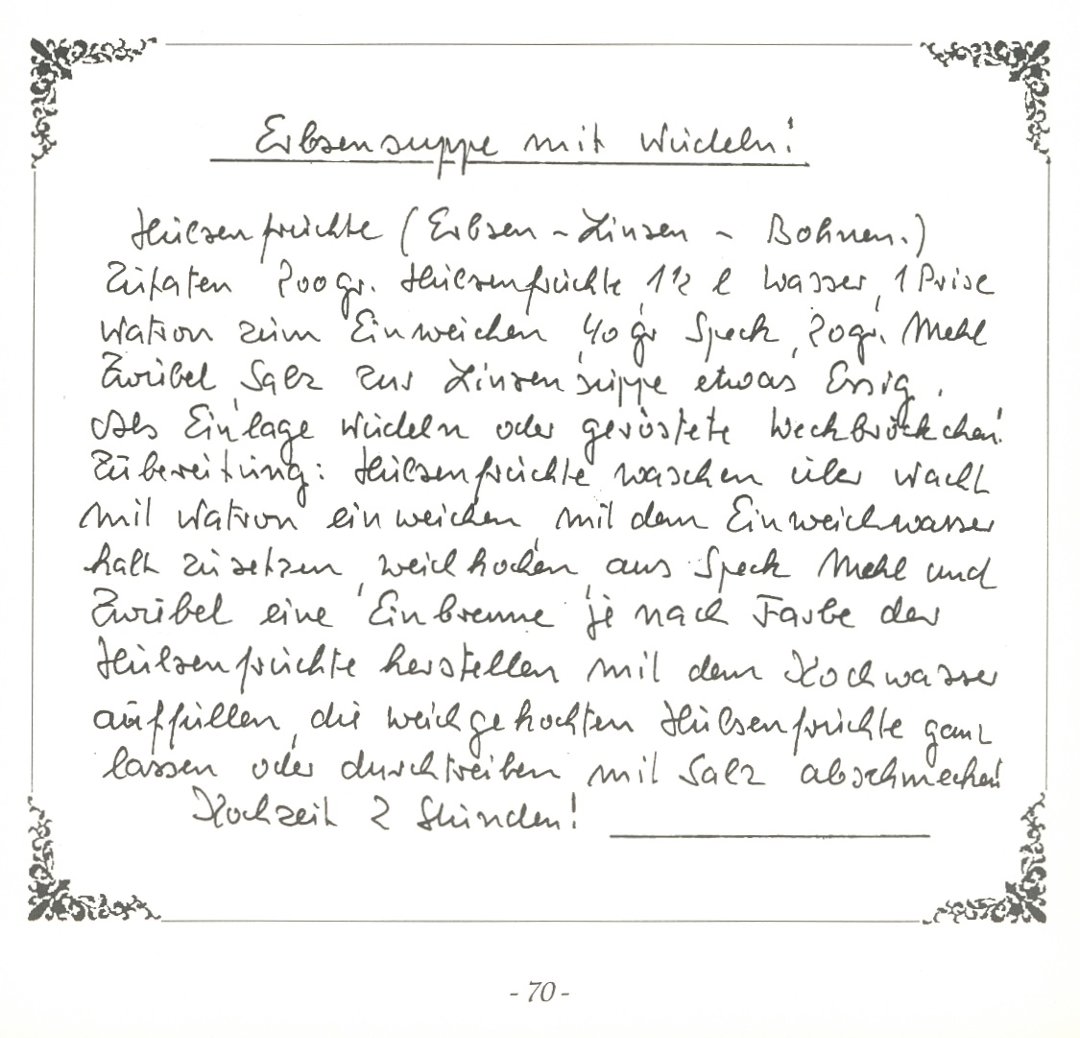 Erbsensuppe mit Nudeln!
Hülsenfrüchte (Erbsen - Linsen - Bohnen.)
Zutaten 200gr. Hülsenfrüchte, 1½ l Wasser, 1 Prise
Natron zum Einweichen, 40 gr Speck, 20gr. Mehl
Zwibel, Salz zur Linsensuppe etwas Essig.
Als Einlage Nudeln oder geröstete Weckbröckchen!
Zubereitung: Hülsenfrüchte waschen über Nacht
mit Natron einweichen, mit dem Einweichwasser
kalt zusetzen, weichkochen, aus Speck Mehl und
Zwibel eine Einbrenne je nach Farbe der
Hülsenfrüchte herstellen mit dem Kochwasser
auffüllen, die weichgekochten Hülsenfrüchte ganz
lassen oder durchtreiben mit Salz abschmecken!
Kochzeit 2 Stunden!
- 70 -